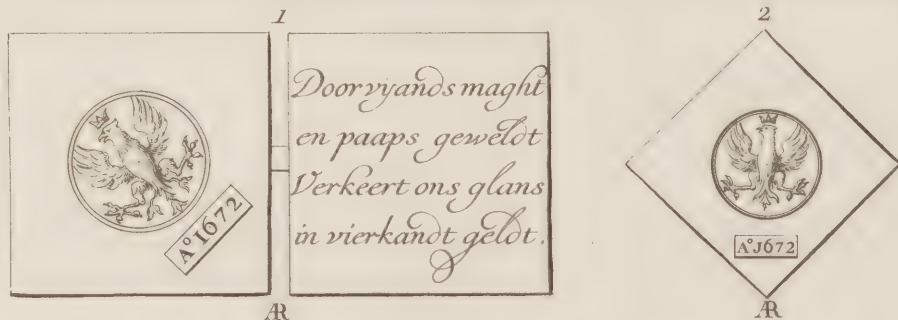 1
Door vyands maght
en paaps geweldt
Verkeert ons glans
in vierkandt geldt.
Aº 1672
AR
2
Aº J672
AR